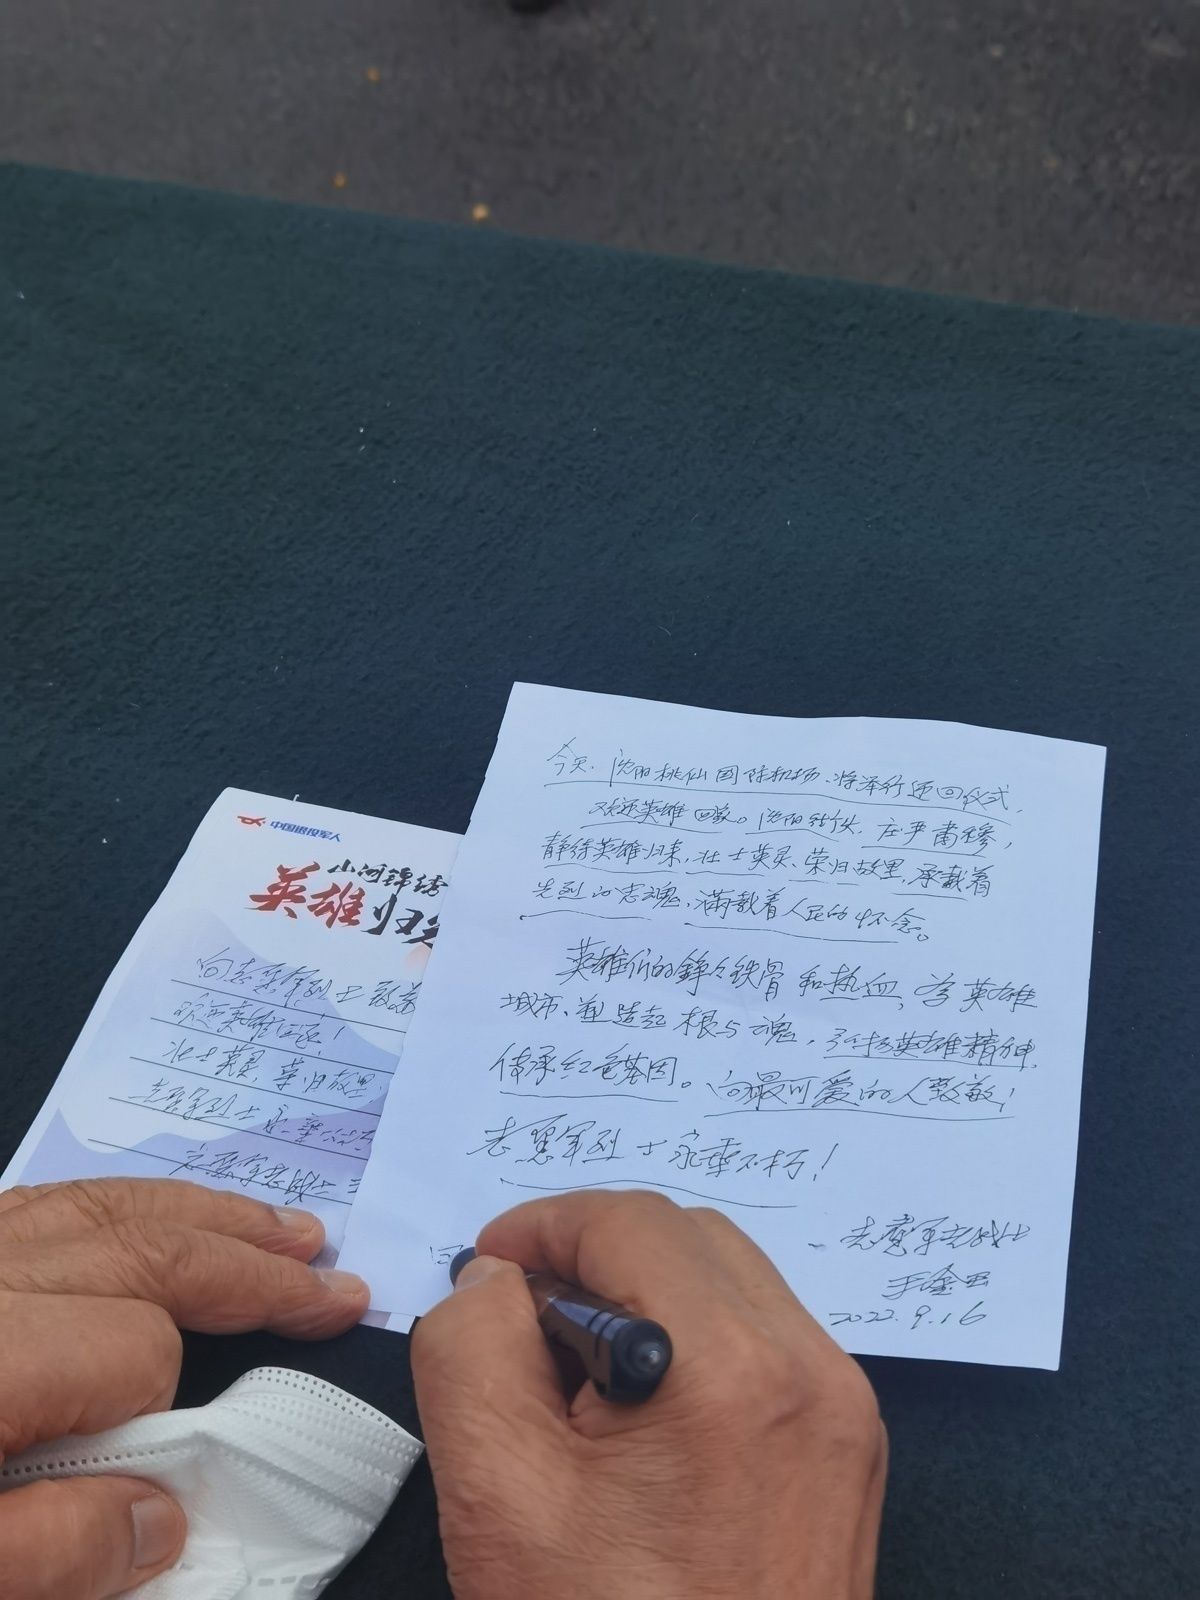 中国退役军人
山河锦绣
英雄归来
向志愿军烈士致敬
欢迎英雄回家！
壮士英灵，荣归故里
志愿军烈士永垂不朽
志愿军老战士
今天，沈阳桃仙国际机场，将举行迎回仪式，
欢迎英雄回家。沈阳 庄严肃穆，
静待英雄归来，壮士英灵、荣归故里，承载着
先烈的忠魂，满载着人民的怀念。
英雄们的铮々铁骨和热血，为英雄
城市、塑造起根与魂，弘扬英雄精神，
传承红色基因。向最可爱的人致敬！
志愿军烈士永垂不朽！
志愿军老战士
2022.9.16